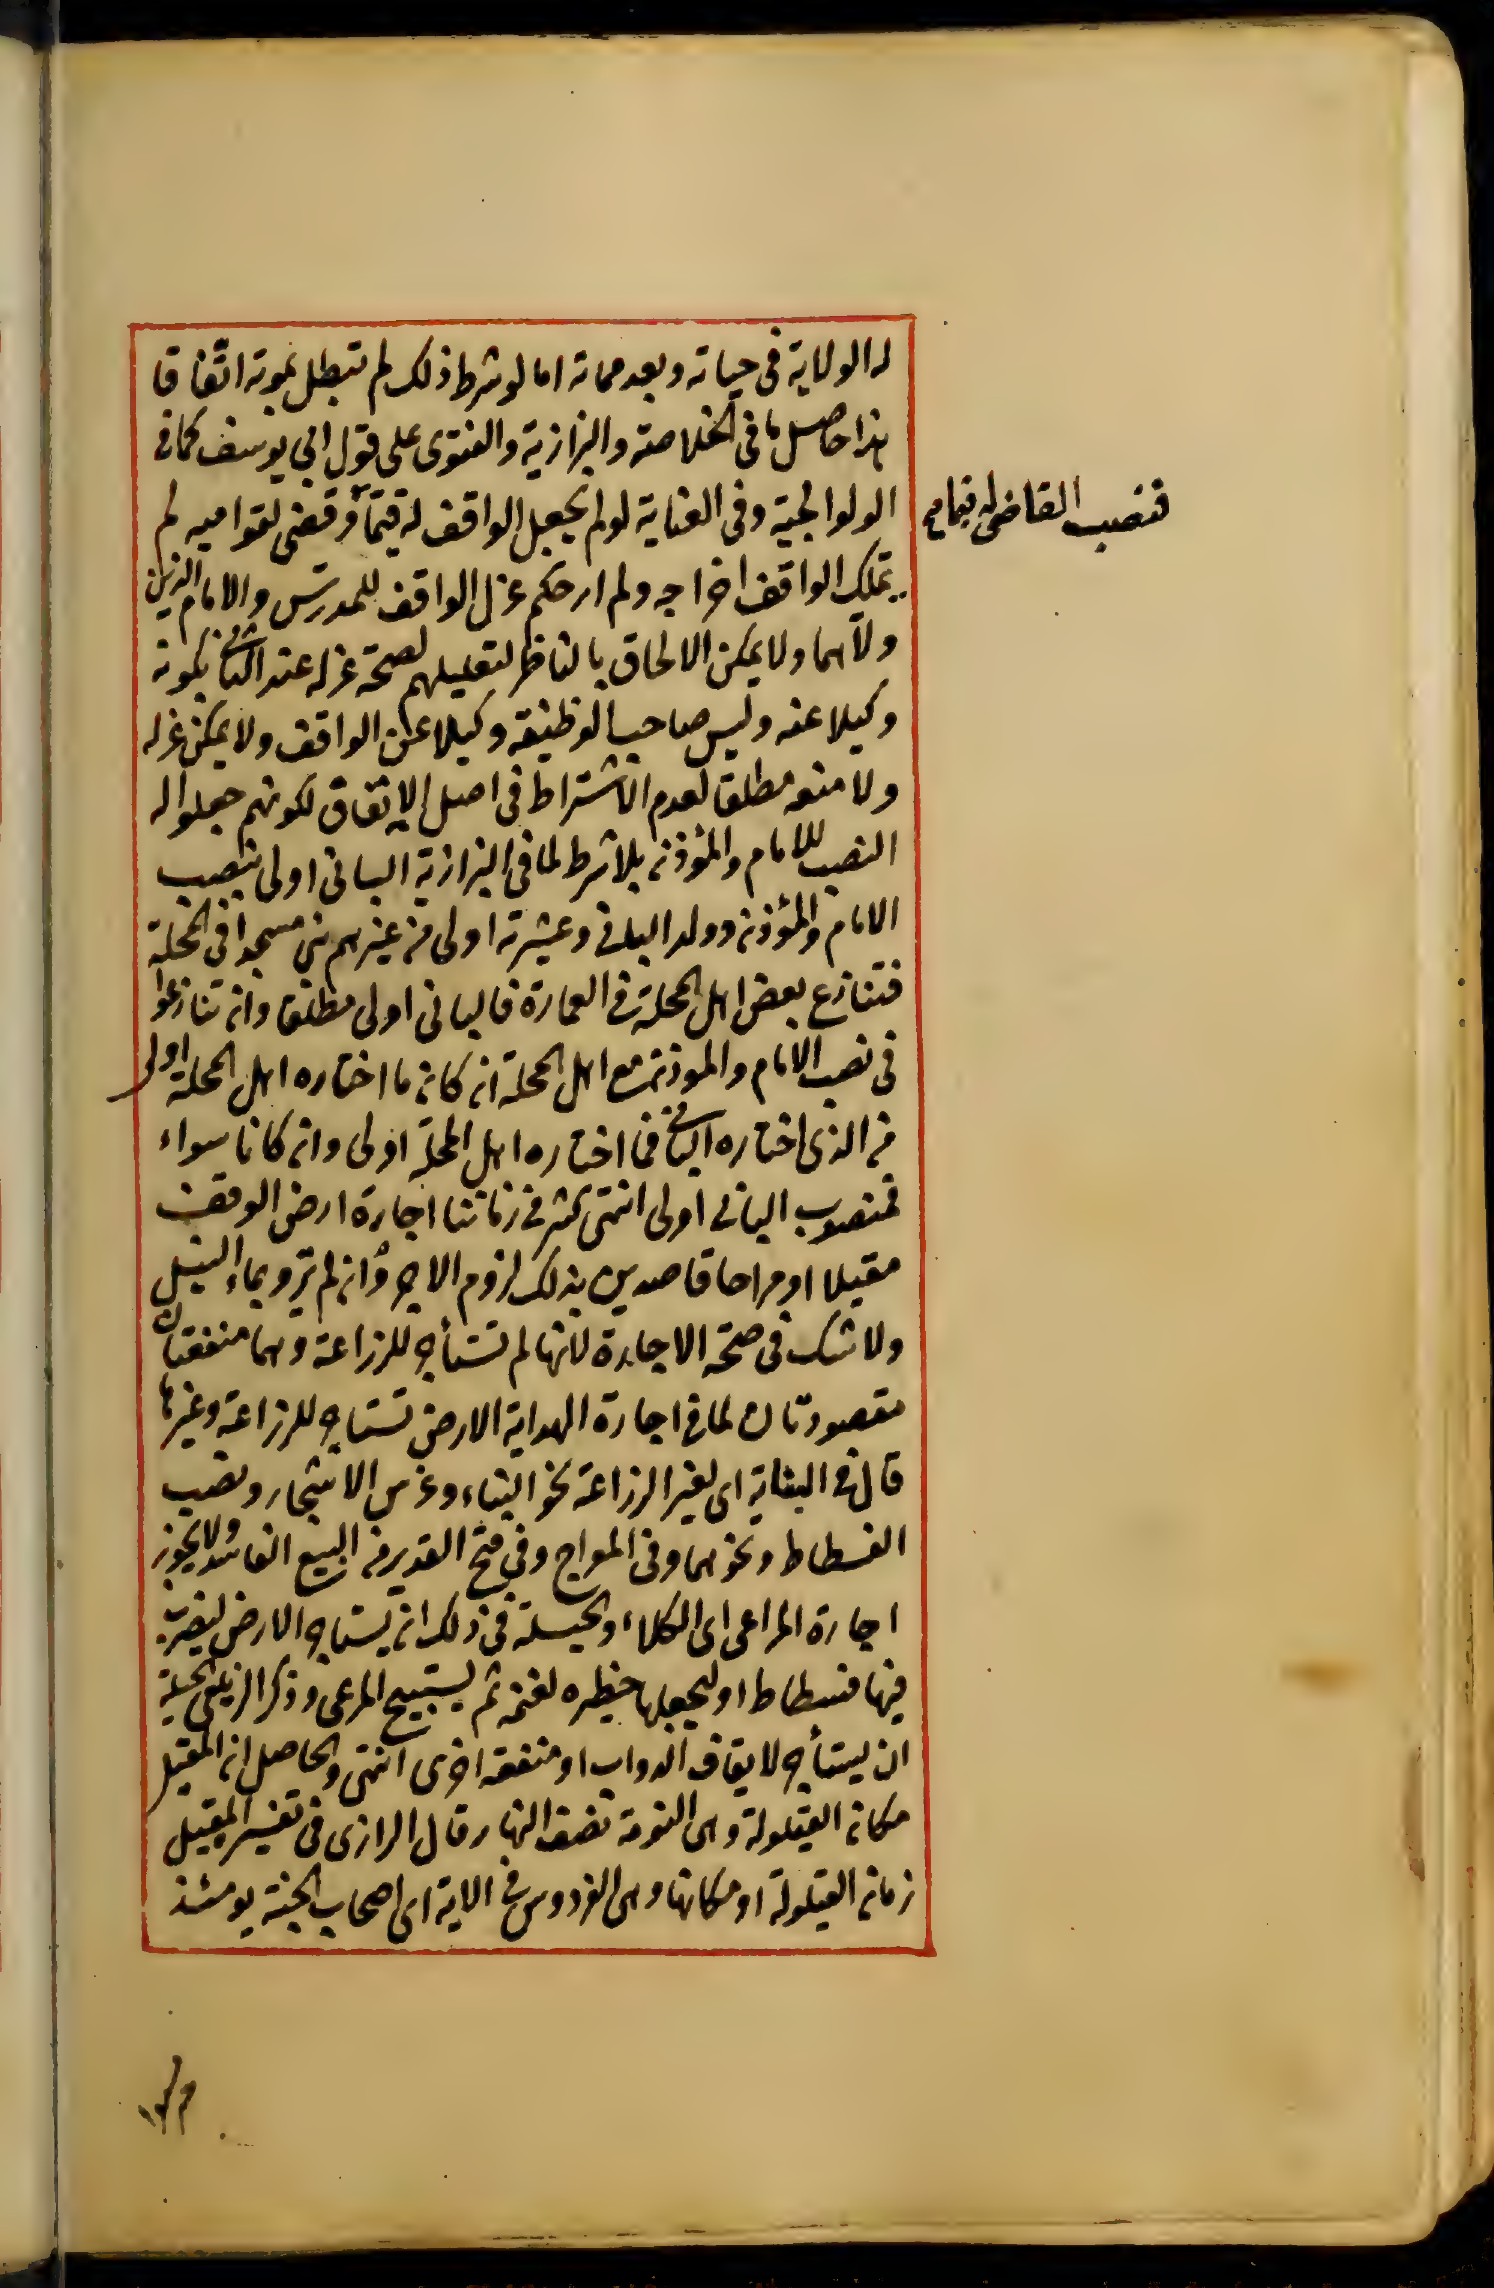 له الولاية فى حياته وبعد مماته اما لو شرط ذلك لم تبطل بموته اتفاقا
هذا حاصل ما فى الخلاصة والبزازية والفتوى على قول ابى يوسف كما فى
الولوالجية وفى العناية لو لم يجعل الواقف له قيما وقضى لقواميه لم
فنصب القاضى له قيما صح
يملك الواقف اخراجه ولم ار حكم عزل الواقف للمدرس والامام الذين
ولاهما ولا يمكن الالحاق بالناظر لتعليلهم لصحة عزله عند الثانى بكونه
وكيلا عنه وليس صاحب الوظيفة وكيلا عن الواقف ولا يمكن عزله
ولا منعه مطلقا لعدم الاشتراط فى اصل الاتفاق لكونهم جعلوا له
النصب للامام والمؤذن بلا شرط لما فى البزازية البانى اولى بنصب
الامام والمؤذن وولد البانى وعشيرته اولى من غيرهم بنى مسجدا فى المحلة
فتنازع بعض اهل المحلة فى العمارة فالبانى اولى مطلقا وان تنازعوا
فى نصب الامام والموذن مع اهل المحلة ان كان ما اختاره اهل المحلة اولى
من الذى اختاره البانى فما اختاره اهل المحلة اولى وان كانا سواء
فمنصوب البانى اولى انتهى كثر فى زماننا اجارة ارض الوقف
مقيلا او مراحا قاصدين بذلك لزوم الاجر وان لم ترو بماء النيل
ولا شك فى صحة الاجارة لانها لم تستأجر للزراعة وهما منفعتان
مقصودتان لما فى اجارة الهداية الارض تستاجر للزراعة وغيرها
قال فى البناية اى لغير الزراعة نحو البناء وغرس الاشجار ونصب
الفسطاط ونحوهما وفى المعراج وفى فتح القدير من البيع الفاسد ولا يجوز
اجارة المراعى اى الكلاء والحيلة فى ذلك ان يستاجر الارض ليضرب
فيها فسطاطا او ليجعلها حظيره لغنمه ثم يستبيح المرعى وذكر الزيلعى الحيلة
ان يستأجر لايقاف الدواب او منفعة اخرى انتهى والحاصل ان المقيل
مكان القيلولة وهى النومة نصف النهار قال الرازى فى تفسير المقيل
زمان القيلولة او مكانها وهى الفردوس فى الاية اى اصحاب الجنة يومئذ